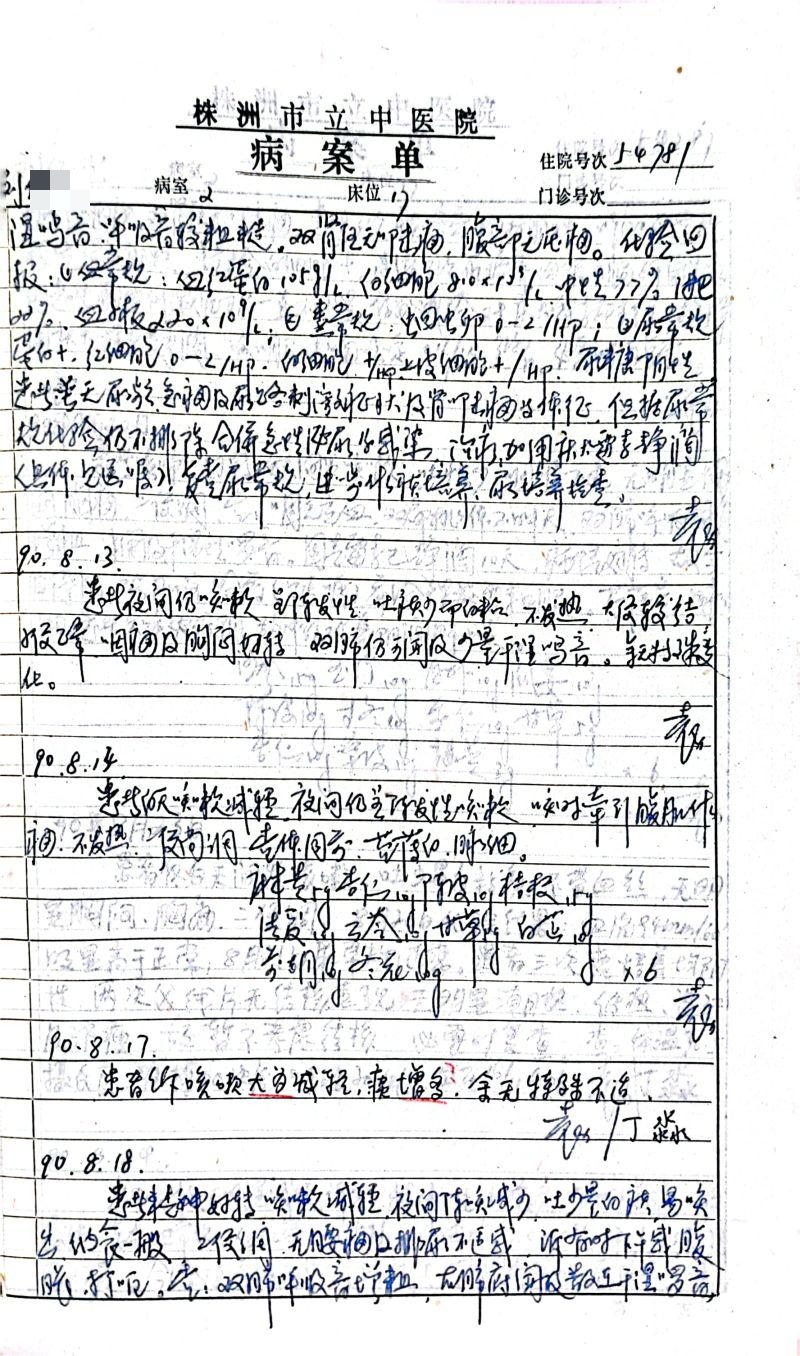 株洲市立中医院
病案单
住院号次 54781
刘 病室 2 床位 17 门诊号次
湿鸣音,呼吸音较粗糙。双肾区无叩击痛,腹部无压痛。化验回
报:①血常规:血红蛋白105g/L 白细胞8.0×10⁹/L 中性77% 淋巴
22%、血小板220×10⁹/L;②
蛔虫卵0-2/HP;③尿常规
蛋白+、红细胞0-2/HP、白细胞+/HP 上皮细胞+/HP.尿糖阴性
患者无尿频、急、痛及尿路刺激征状及肾叩击痛等体征,但据尿常
规化验仍不排除合併急性泌尿系感染,治疗加用
静滴
(具体见医嘱)!复查尿常规,进一步作痰培养、尿培养检查。
90.8.13.
患者夜间仍咳嗽 呈阵发性、吐痰少 不发热 大便较结,
咽痛及胸闷好转 双肺仍可闻及少量干湿鸣音。余无特殊变
化。
90.8.14
患者仍咳嗽减轻 夜间仍呈阵发性咳嗽 咳时牵引腹肌作
痛.不发热 二便尚调 查体同前.苔薄白,脉细。
麻黄5g 杏仁10g 陈皮10g 桔梗15g
法夏10g 云苓 甘草 白芷
前胡10g 冬花10g ×6
90.8.17.
患者昨咳嗽大为减轻,痰增多?.余无特殊不适.
/丁淼
90.8.18.
患者精神好转 咳嗽减轻 夜间阵咳减少 吐少量白痰 易咳
出 纳食一般 二便调 无腰痛及排尿不适感
腹
胀.打呃。查:双肺呼吸音增粗,右肺底闻及散在干湿啰音